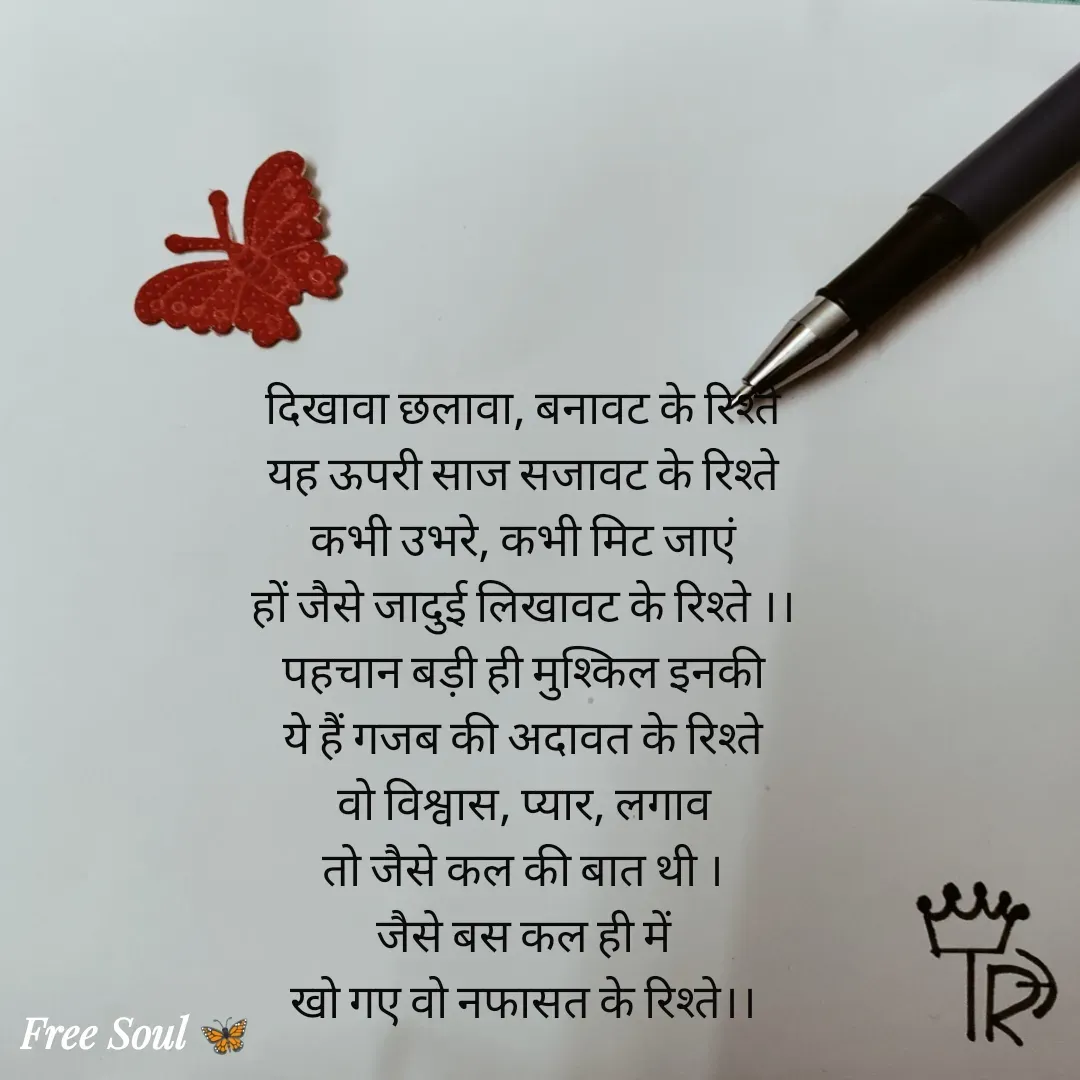 दिखावा छलावा, बनावट के रिश्ते
यह ऊपरी साज सजावट के रिश्ते
कभी उभरे, कभी मिट जाएं
हों जैसे जादुई लिखावट के रिश्ते ।।
पहचान बड़ी ही मुश्किल इनकी
ये हैं गजब की अदावत के रिश्ते
वो विश्वास, प्यार, लगाव
तो जैसे कल की बात थी ।
जैसे बस कल ही में
खो गए वो नफासत के रिश्ते।।
Free Soul 🦋